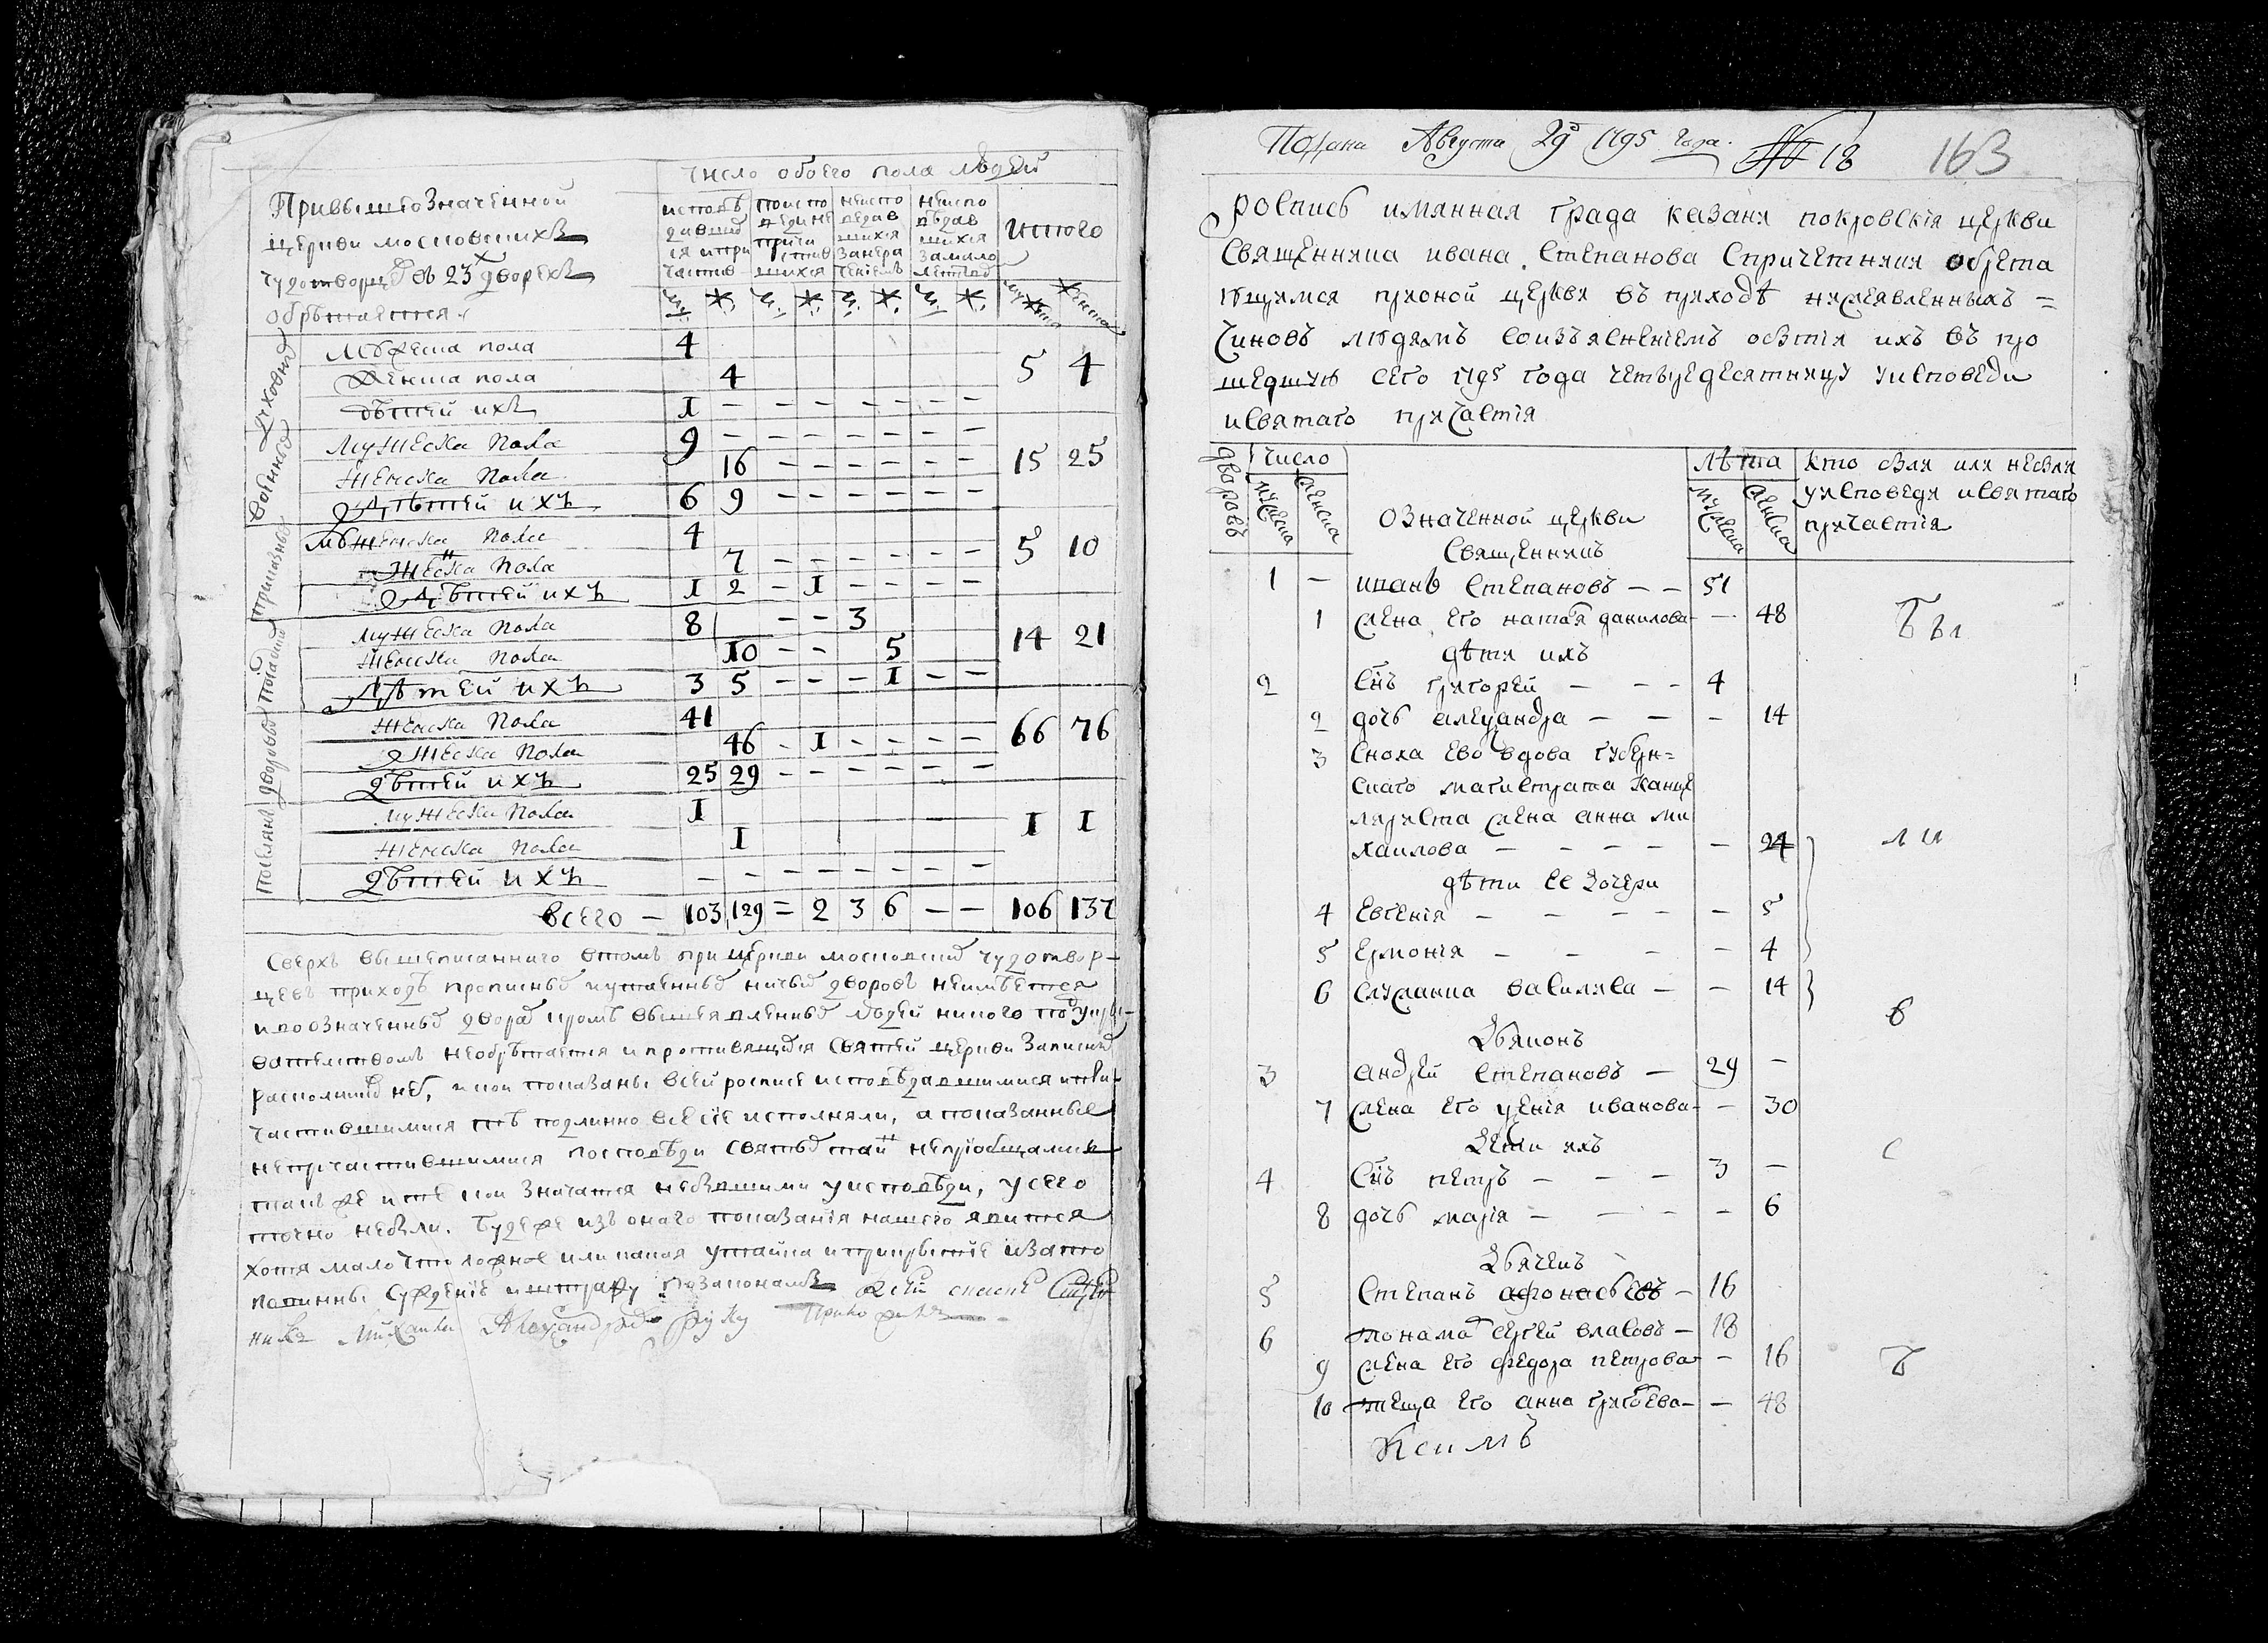 Число обоего пола людей
Привышеозначенной
церкви московскихъ
чудотворцъ въ 23х дворехъ
обрѣтается
исповѣдавшихся и причастив
поисповеди не причастившихся
неисповедавшихся за нерачениемъ
неисповѣдавшихся за малолетъ
итого
м. ж. м. ж. м. ж. м. ж. мужеска женска
духовныхъ
мужеска пола 4
женска пола 4 5 4
дѣтей ихъ 1 – – – – – – –
военныхъ
мужеска пола 9 – – – – – – –
женска пола 16 – – – – – – 15 25
дѣтей ихъ 6 9 – – – – – –
приказныхъ
мужеска пола 4
женска пола 7 – – – – – – 5 10
дѣтей ихъ 1 2 – 1 – – – –
посацкихъ
мужеска пола 8 – – 3
женска пола 10 – – 5 14 21
дѣтей ихъ 3 5 – – – 1 – –
дворовыхъ
женска пола 41
жеска пола 46 – 1 – – – – 66 76
дѣтей ихъ 25 29 – – – – – –
поселянъ
мужеска пола 1
женска пола 1 1 1
дѣтей ихъ – – – – – – – –
всего – 103 129 = 2 3 6 – – 106 137
Сверхъ вышеписанного втомъ при церкви московскихъ чудотвор-
цевъ приходѣ прописныхъ и утаенныхъ ничьихъ дворовъ неимѣется
и в означенныхъ дворахъ кромѣ вышеявленныхъ людей никого подукры-
вательствомъ необрѣтается и противящихся святей церкви записныхъ
раскольниковъ нѣтъ, и кои показаны всей росписи исповѣдавшимися и
частившимися тѣ подлинно все сіе исполняли, а показанные
непричастившимися поисповѣди святыхъ таинъ неприобщались
такъ же и тѣ кои значатся небывшими уисповѣди, усего
точно небыли. Будеже изъ онаго показанія нашего явится
хотя мало что ложное или какая утайка и прикрытіе и за то
повинны суждение и штрафу позаконамъ. Ксей
Михаила Александровъ руку приложилъ
Подана Августа 29г 1795 года. № 18 163
роспись имянная града казани покровскія церкви
священника ивана степанова спричетники обрета
ющимся прионой церкви въ приходѣ нижеявленныхъ =
чиновъ людямъ соизъясненіемъ обытіи ихъ въ про
шедшую сего 1795 года четыредесятницу уисповеди
исвятаго причастія
дворовъ Число мужеска женска
означенной церкви
Лѣта мужеска женска
кто былъ или небылъ
уисповеди исвятаго
причастія
священникъ
1 – иванъ степановъ – – 51
1 жена его наталя данилова – – 48
дѣти ихъ
2 снъ григорей – – – 4
2 дочь александра – – – 14
3 сноха ево вдова губерн=
скаго магистрата канце
ляриста жена анна ми
хаилова – – – – – 24
дѣти ее дочери
4 евгенія – – – – – 5
5 ермонія – – – – 4
6 служанка василиса – – 14
дьяконъ
3 андрей степановъ – 29 –
7 жена его ксенія иванова – – 30
дети ихъ
4 снъ петръ – – – 3 –
8 дочь марія – – – – 6
дьячекъ
5 степанъ афонасьевъ – 16
6 понамарь сергей власовъ – 18
9 жена его федора петрова – – 16
10 теща его анна григоева – – 48
Б ы
л и
в
с
ъ
Ксимъ